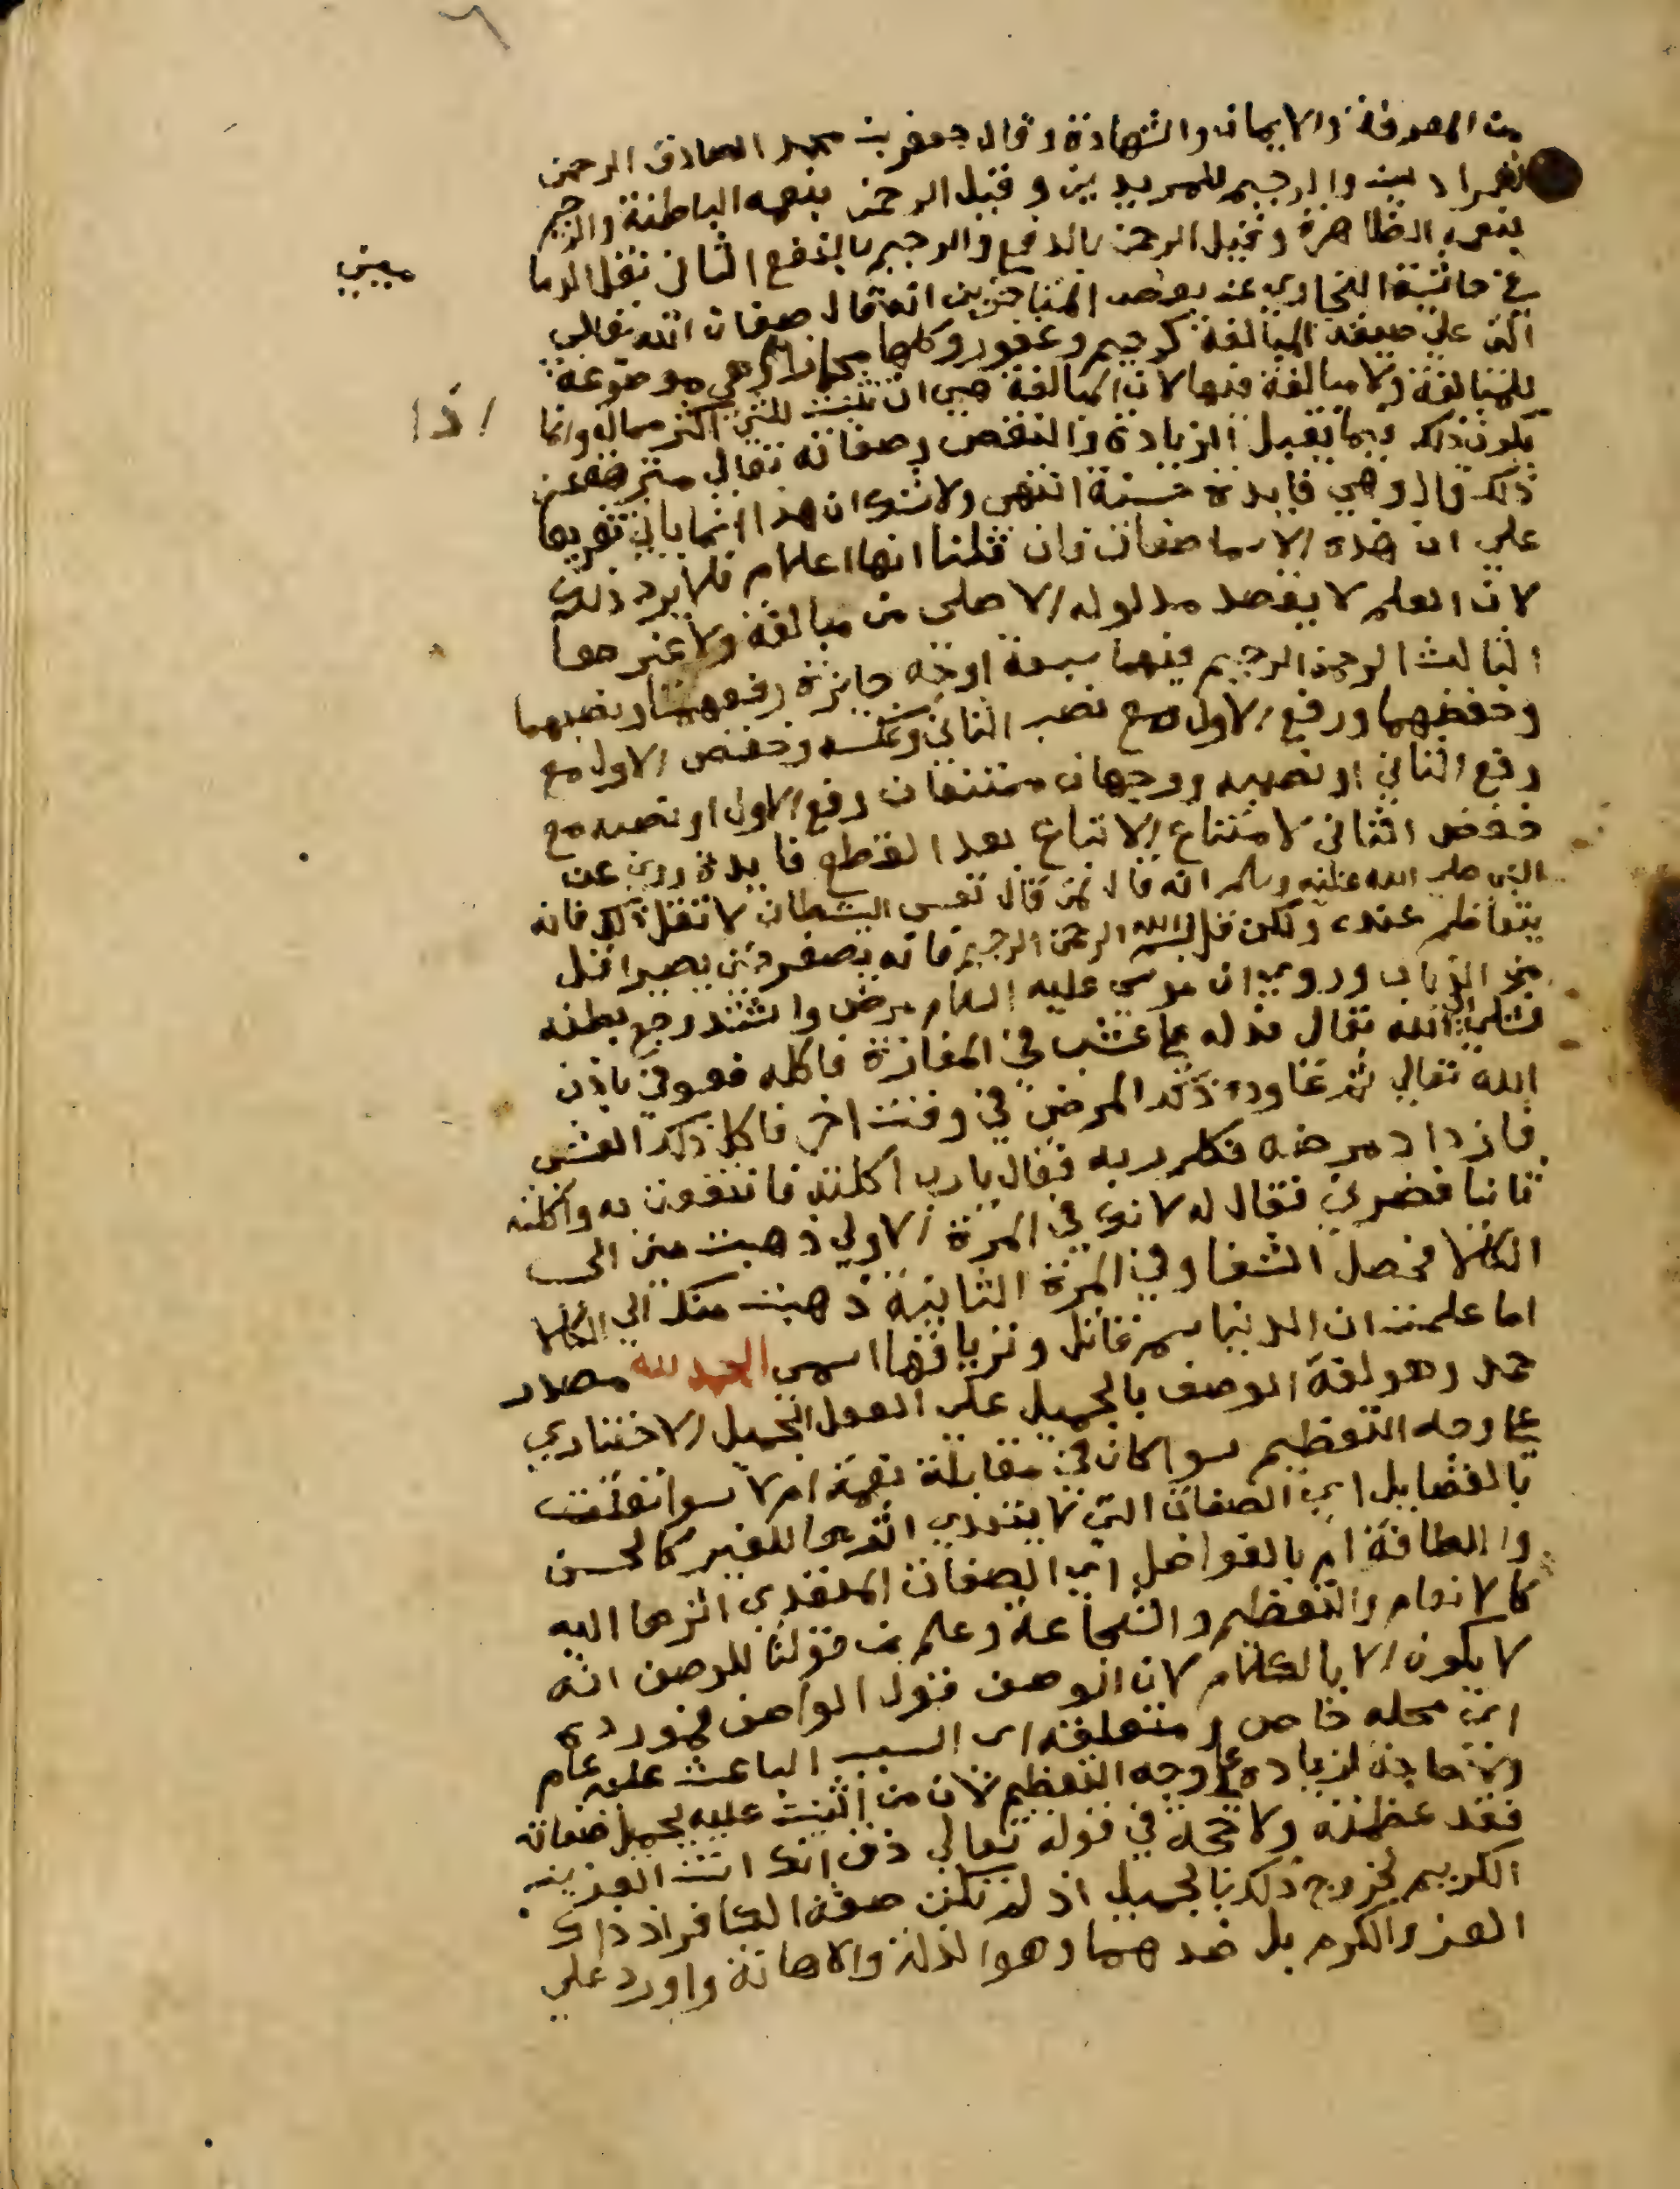 من المعرفة والايمان والشهادة وقال جعفر بن محمد الصادق الرحمن
للمرادين والرحيم للمريدين وقيل الرحمن بنعمه الباطنة والرحيم
بنعمه الظاهرة وقيل الرحمن بالدفع والرحيم بالنفع الثاني نقل الدما
ميني
في حاشية البخاري عن بعض المتاخرين انه قال صفات الله تعالى
التي على صيغة المبالغة كرحيم وغفور وكلها مجاز اذ هي موضوعة
للمبالغة ولا مبالغة فيها لان المبالغة هي ان تثبت للشي اكثر مماله وانما
اذا
يكون ذلك فيما يقبل الزيادة والنقص وصفاته تعالى منزهة عن
ذلك قال وهي فايدة حسنة انتهى ولا شك ان هذا انما ياتي تفريعا
على ان هذه الاسما صفات فان قلنا انها اعلام فلا يرد ذلك
لان العلم لا يقصد مدلوله الاصلي من مبالغة ولا غيرها
الثالث الرحمن الرحيم فيهما سبعة اوجه جايزة رفعهما ونصبهما
وخفضهما ورفع الاول مع نصب الثاني وعكسه وخفض الاول مع
رفع الثاني او نصبه ووجهان ممتنعان رفع الاول او نصبه مع
خفض الثاني لامتناع الاتباع بعد القطع فايدة روي عن
النبي صلى الله عليه وسلم انه قال لمن قال تعس الشيطان لا تقل ذلك فانه
يتعاظم عنده ولكن قل بسم الله الرحمن الرحيم فانه يصغر حتى يصير اقل
من الذباب وروي ان موسى عليه السلام مرض واشتد وجع بطنه
فشكى الى الله تعالى فدله على عشب في المفازة فاكله فعوفي باذن
الله تعالى ثم عاوده ذلك المرض في وقت اخر فاكل ذلك العشب
فازداد مرضه فكلم ربه فقال يارب اكلته فانتفعت به واكلته
ثانيا فضرني فقال له لانك في المرة الاولى ذهبت مني الى
الكلا فحصل الشفا وفي المرة الثانية ذهبت منك الى الكلا
اما علمت ان الدنيا سم قاتل وترياقها اسمي الحمد لله مصدر
حمد وهو لغة الوصف بالجميل على الفعل الجميل الاختياري
على وجه التعظيم سوا كان في مقابلة نعمة ام لا سوا تعلقت
بالفضايل اي الصفات التي لا يتعدي اثرها للغير كالحسن
واللطافة ام بالفواضل اي الصفات المتعدي اثرها اليه
كالانعام والتعظيم والشجاعة وعلم من قولنا الوصف انه
لا يكون الا بالكلام لان الوصف قول الواصف فمورده
اي محله خاص ومتعلقه اي السبب الباعث عليه عام
ولا حاجة لزيادة على وجه التعظيم لان من اثنيت عليه بجميل صفاته
فقد عظمته ولا حجة في قوله تعالى ذق انك انت العزيز
الكريم لخروج ذلك بالجميل اذ لم تكن صفة الكافر اذ ذاك
العز والكرم بل ضدهما وهو الذلة والاهانة واورد على